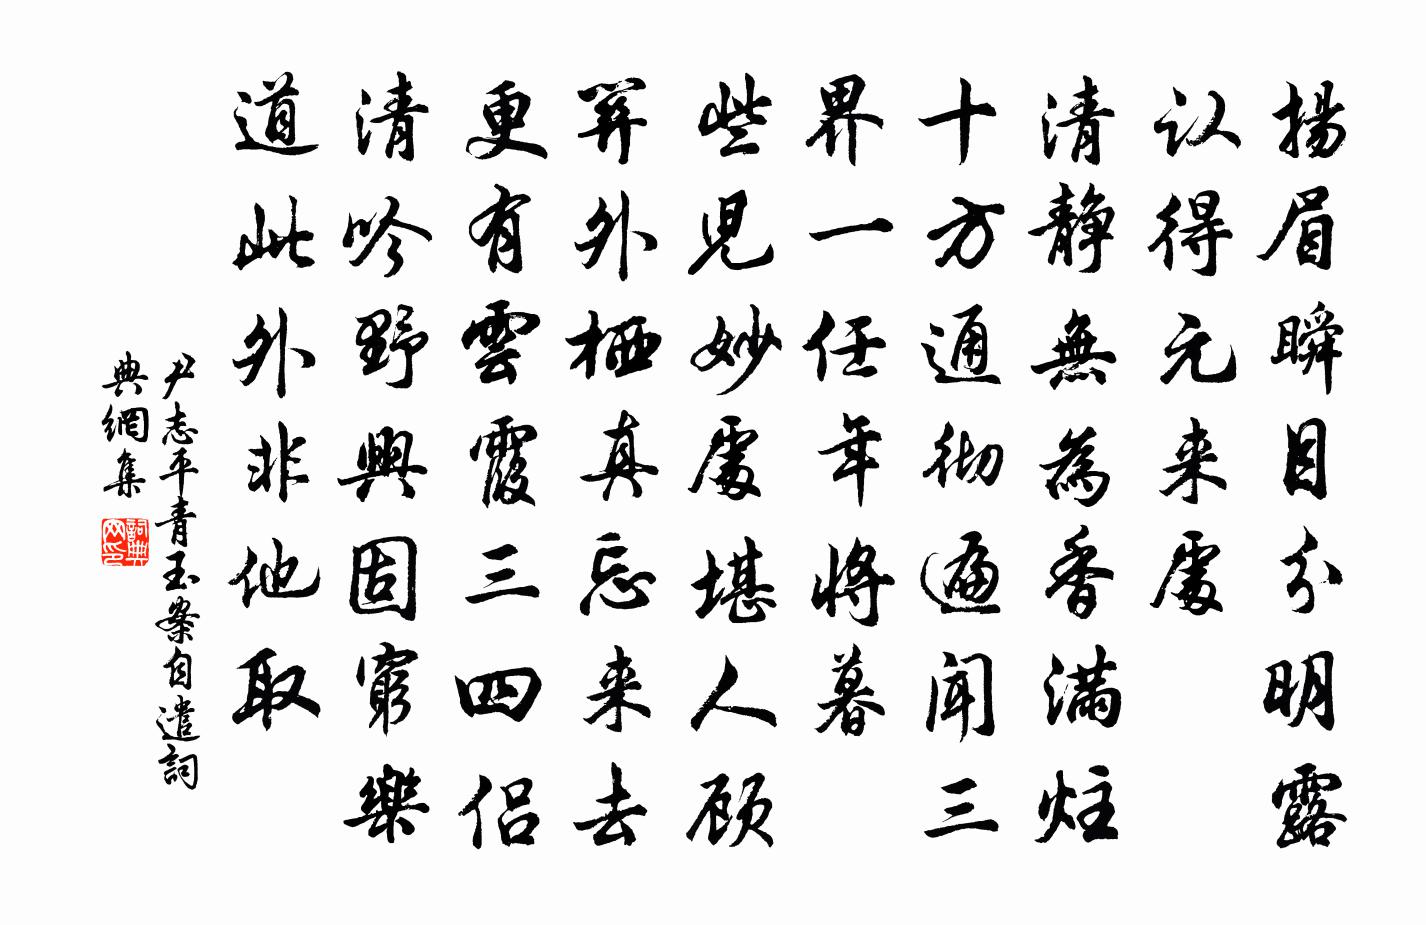 揚眉瞬目分明露
认得元来處
清靜無為香滿炷
十方通彻遍闻三
界一任年将暮
些兒妙處堪人顾
算外栖真忘来去
更有雲霞三四侣
清吟野興固窮樂
道此外非他取
尹志平青玉案自遣詞
典網集
詞典
网印